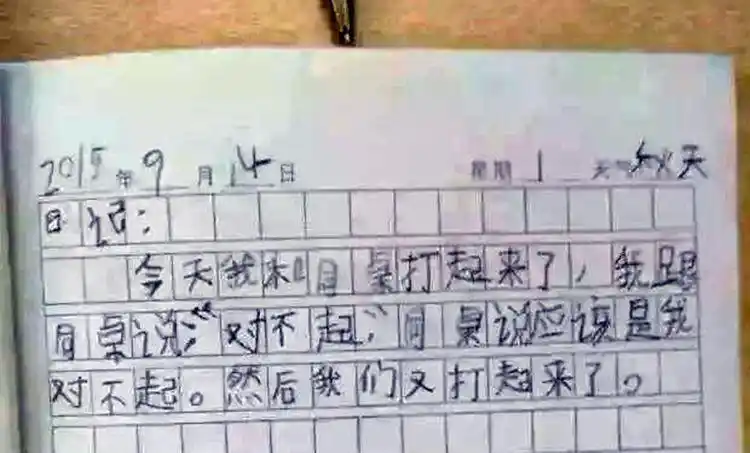 2015年9月14日 星期1 天气秋天
日记:
今天我和同桌打起来了,我跟
同桌说:“对不起;”同桌说应该是我
对不起。然后我们又打起来了。